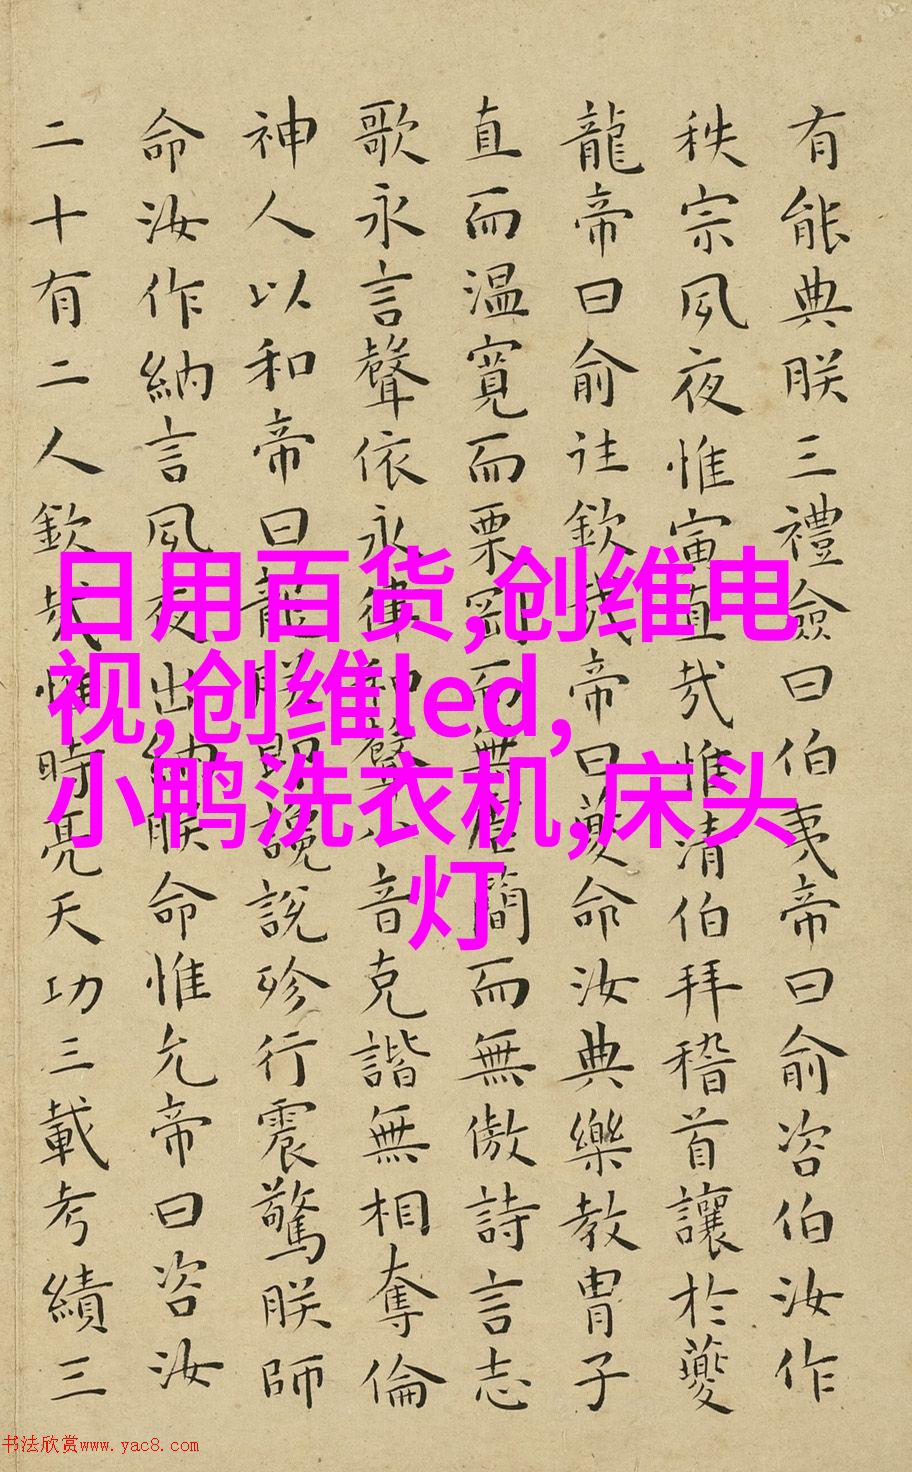 有能典朕三禮僉曰伯夷帝曰俞咨伯汝作
秩宗夙夜惟寅直哉惟清伯拜稽首讓於夔
龍帝曰俞往欽哉帝曰夔命汝典樂教胄子
直而温寬而栗剛而無虐簡而無傲詩言志
歌永言聲依永律和聲八音克諧無相奪倫
神人以和帝曰龍朕堲讒說殄行震驚朕師
命汝作納言夙夜出納朕命惟允帝曰咨汝
二十有二人欽哉惟時亮天功三載考績三
日用百货,创维电
视,创维led,
小鸭洗衣机,床头
灯
书法欣赏www.yac8.com